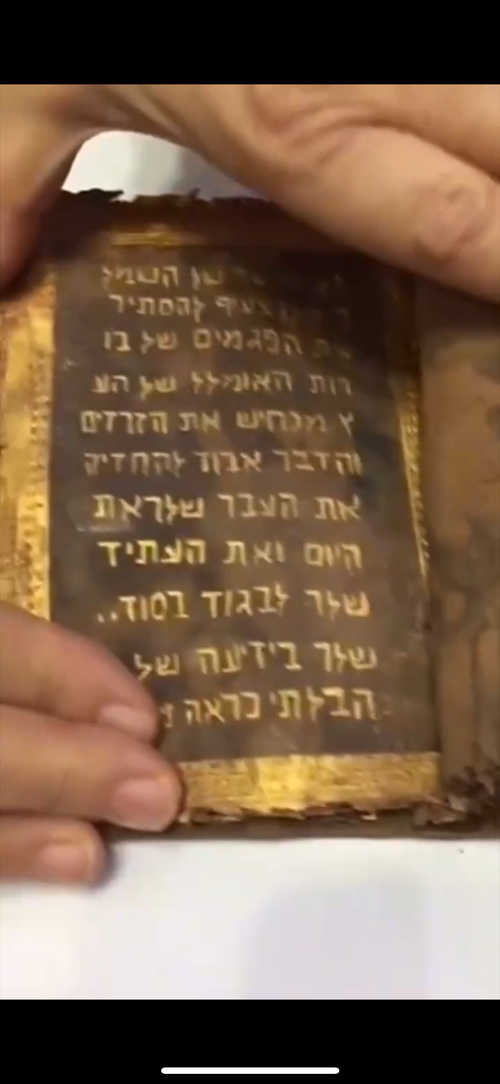 של השמל
צעיף להסתיר
את הפגמים של בו
רות האומלל של הע
ץ מכחיש את הזרזים
והדבר אבוד להחזיק
את העבר שלראת
היום ואת העתיד
שלך לבגוד בסוד..
שלך בידיעה של
הבלתי כראה